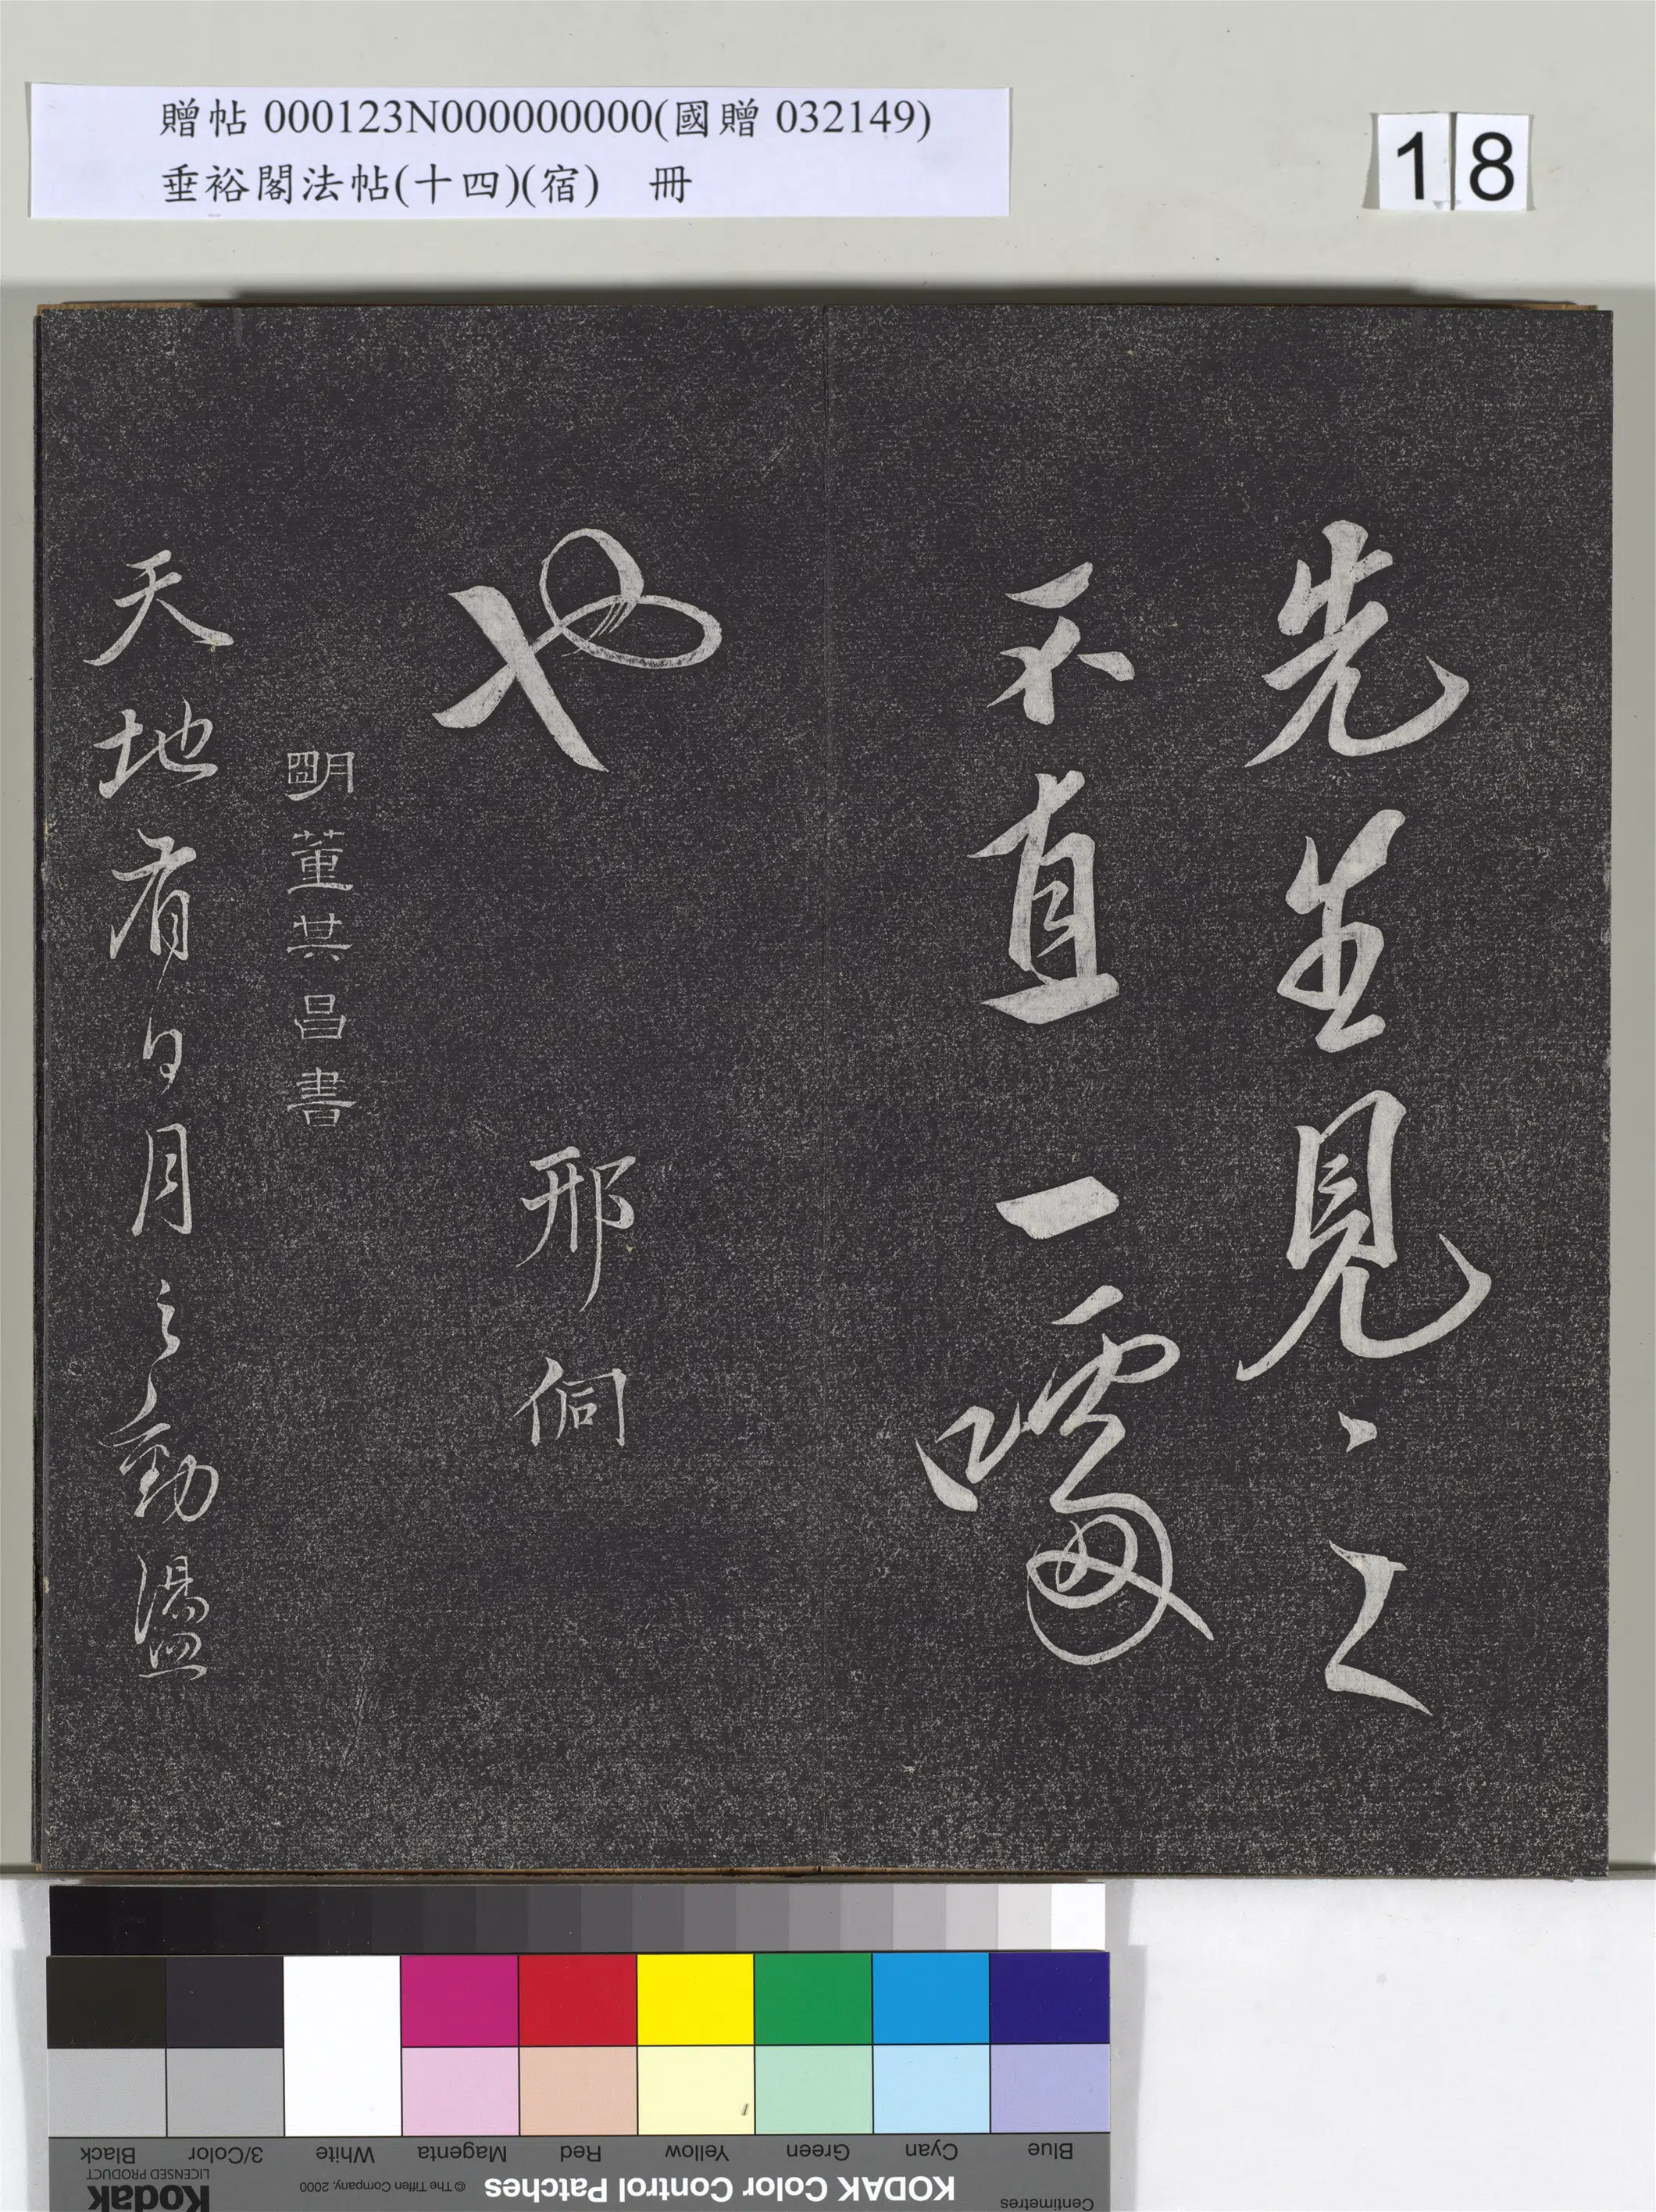 贈帖 000123N000000000(國贈 032149)
垂裕閣法帖(十四)(宿) 冊
18
先生見之
不直一噱
也 邢侗
明董其昌書
天地有日月之勳盪
Blue Cyan Green Yellow Red Magenta White 3/Color Black
Centimetres KODAK Color Control Patches © The Tiffen Company, 2000 Kodak LICENSED PRODUCT